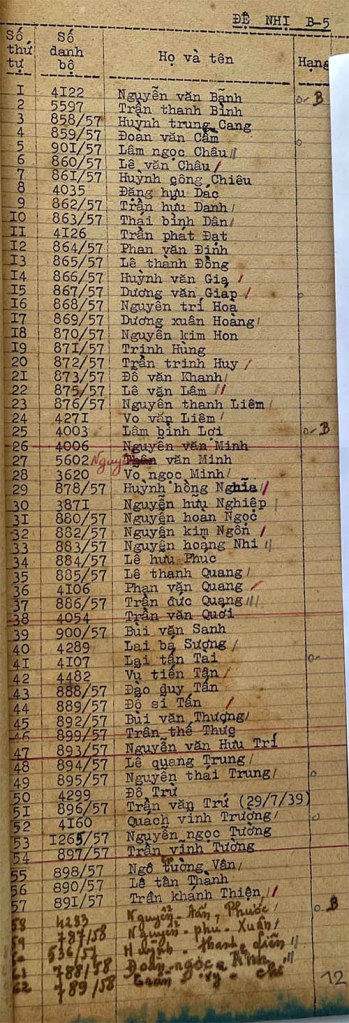 ĐỆ NHỊ B-5
Số thứ tự Số danh bộ Họ và tên Hạng
1 4122 Nguyễn văn Bảnh B
2 5597 Trần thanh Bình
3 858/57 Huỳnh trung Cang
4 859/57 Đoàn văn Cầm
5 901/57 Lâm ngọc Châu
6 860/57 Lê văn Châu
7 861/57 Huỳnh công Chiêu
8 4035 Đặng hữu Dắc
9 862/57 Trần hữu Danh
10 863/57 Thái bình Dân
11 4126 Trần phát Đạt
12 864/57 Phan văn Định
13 865/57 Lê thành Đồng
14 866/57 Huỳnh văn Gia
15 867/57 Dương văn Giáp
16 868/57 Nguyễn trí Hoà
17 869/57 Dương xuân Hoàng
18 870/57 Nguyễn kim Hon
19 871/57 Trịnh Hùng
20 872/57 Trần trinh Huy
21 873/57 Đỗ văn Khanh
22 875/57 Lê văn Lắm
23 876/57 Nguyễn thanh Liêm
24 4271 Võ văn Liêm
25 4003 Lâm bỉnh Lợi B
26 4006 Nguyễn văn Minh
27 5602 Nguyễn văn Minh
28 3620 Võ ngọc Minh
29 878/57 Huỳnh hồng Nghĩa
30 3871 Nguyễn hữu Nghiệp
31 880/57 Nguyễn hoàn Ngọc
32 882/57 Nguyễn kim Ngôn
33 883/57 Nguyễn hoàng Nhi
34 884/57 Lê hữu Phúc
35 885/57 Lê thanh Quang
36 4106 Phan văn Quang
37 886/57 Trần đức Quang
38 4054 Trần văn Quới
39 900/57 Bùi văn Sanh
40 4289 Lai bá Sương
41 4107 Lại tấn Tài
42 4482 Vũ tiến Tân
43 888/57 Đào duy Tấn
44 889/57 Đỗ si Tấn
45 892/57 Bùi văn Thượng
46 899/57 Trần thế Thực
47 893/57 Nguyễn văn Hữu Trí
48 894/57 Lê quang Trung
49 895/57 Nguyễn thái Trung
50 4299 Đỗ Trứ
51 896/57 Trần văn Trứ (29/7/39)
52 4160 Quách vinh Trường
53 1265/57 Nguyễn ngọc Tường
54 897/57 Trần vĩnh Tường
55 898/57 Ngô tường Vân
56 890/57 Lê tấn Thành
57 891/57 Trần khánh Thiện
58 4283 Nguyễn tấn Phước B
59 787/58 Nguyễn phú Xuân
60 536/57 Huỳnh thanh
61 788/58 Đoàn ngọc
62 789/58 12